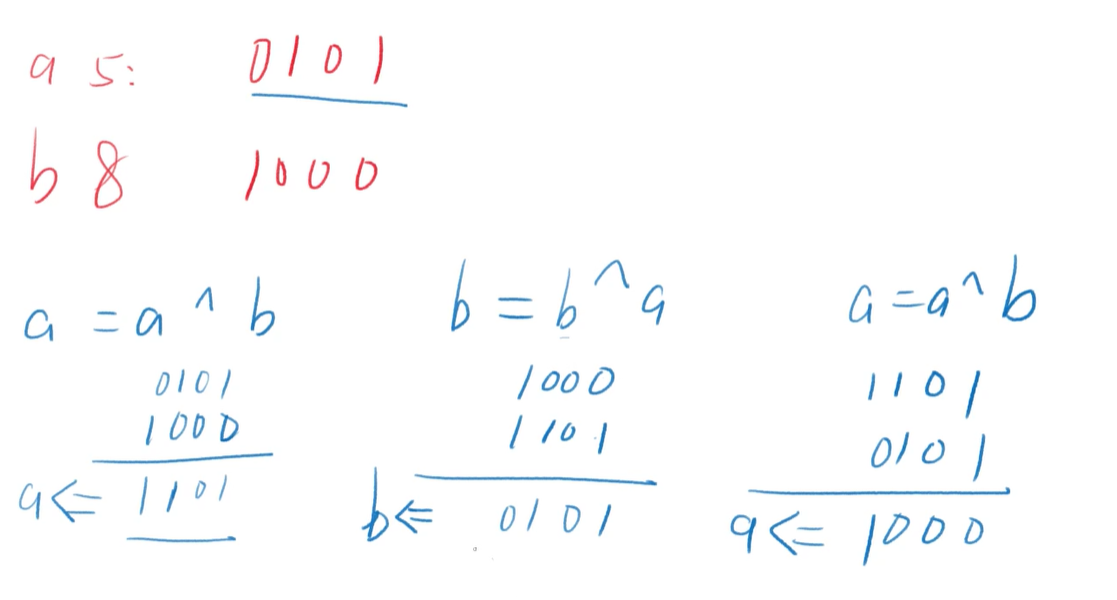 a 5: 0101
b 8 1000
a = a ^ b
0101
1000
a <= 1101
b = b ^ a
1000
1101
b <= 0101
a = a ^ b
1101
0101
a <= 1000